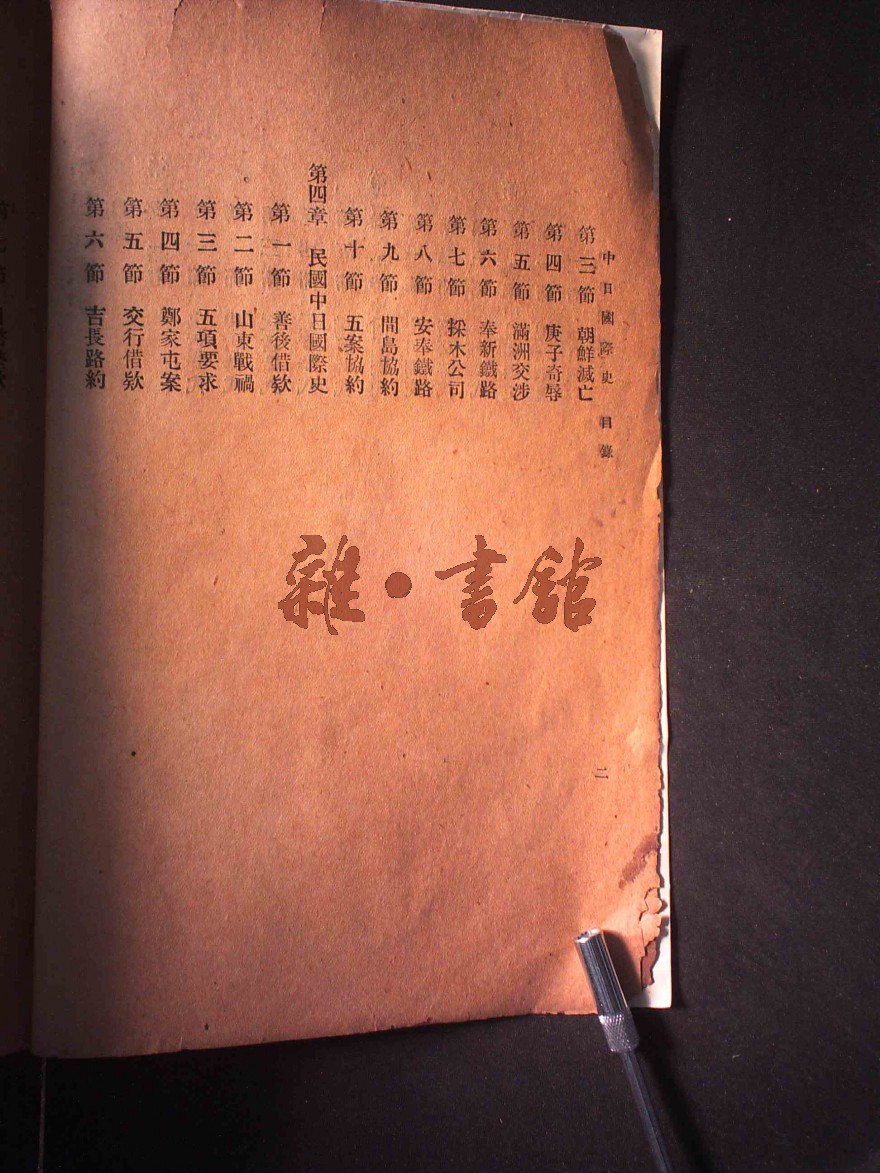 中日國際史 目錄
二
第三節 朝鮮滅亡
第四節 庚子奇辱
第五節 滿洲交涉
第六節 奉新鐵路
第七節 採木公司
第八節 安奉鐵路
第九節 間島協約
第十節 五案協約
第四章 民國中日國際史
第一節 善後借欵
第二節 山東戰禍
第三節 五項要求
第四節 鄭家屯案
第五節 交行借欵
第六節 吉長路約
雜·書館